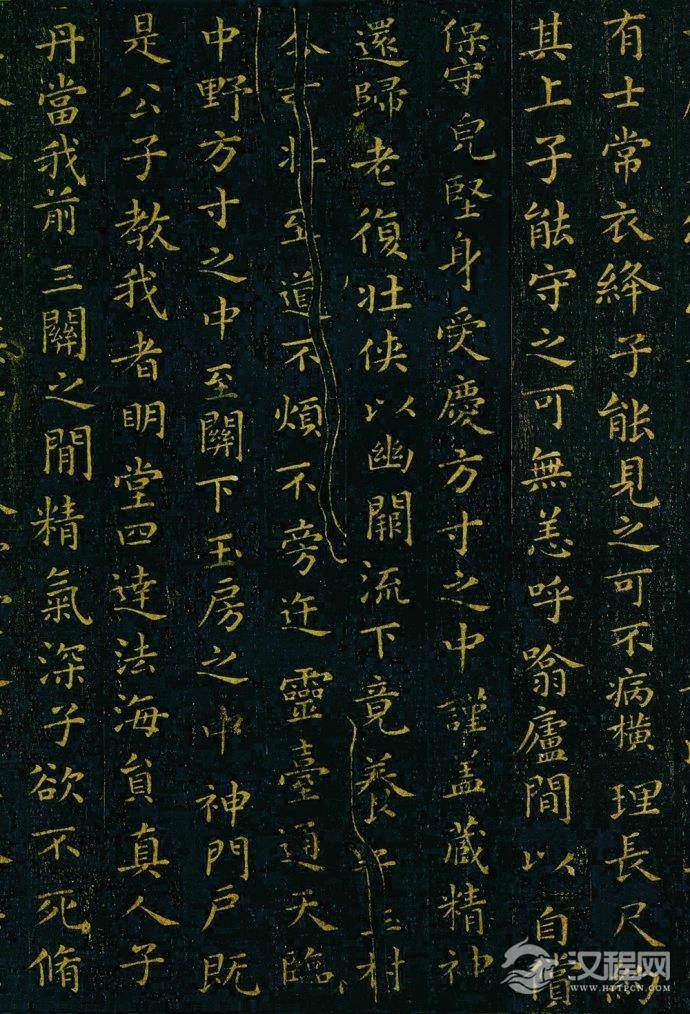 有士常衣絳子能見之可不病橫理長尺約
其上子能守之可無恙呼噏廬間以自償
保守皃堅身受慶方寸之中謹盖藏精神
還歸老復壯俠以幽闕流下竟養子玉樹
不可杖至道不煩不旁迕靈臺通天臨
中野方寸之中至關下玉房之中神門戶既
是公子教我者明堂四達法海員真人子
丹當我前三關之間精氣深子欲不死脩
汉程网
WWW.HTTPCN.COM